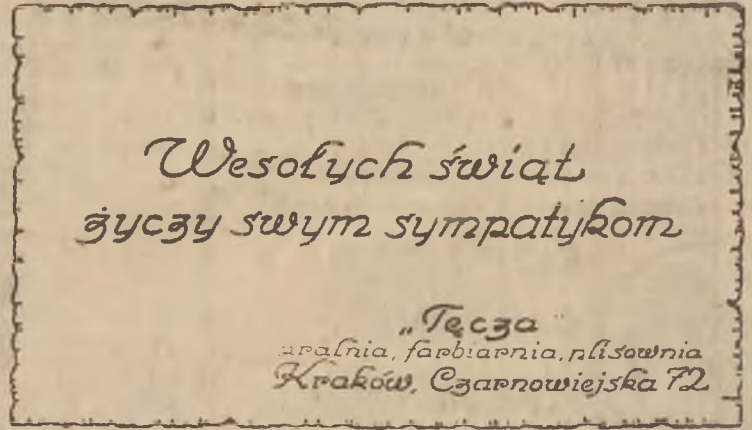 Wesołych świąt
życzy swym sympatykom
„Tęcza"
pralnia, farbiarnia, plisownia
Kraków, Czarnowiejska 72